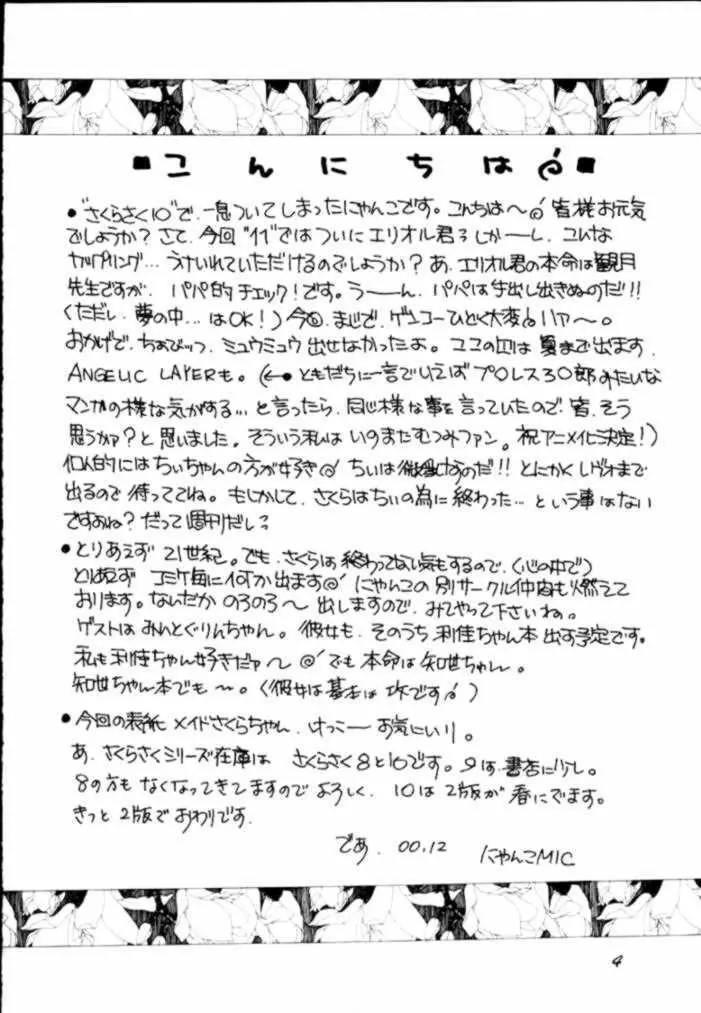 ■こんにちは■
●"さくらさく10"で、一息ついてしまったにゃんこです。こんちは〜 皆様お元気
でしょうか?さて、今回"11"ではついにエリオル君 しかーし、こんな
カップリング…うけいれていただけるのでしょうか?あ、エリオル君の本命は観月
先生ですが、パパ的チェック!です。うーーん、パパは手出し出きぬのだ!!
(ただし、夢の中…はOK!)今回、まじで、ゲンコーひどく大変 ハァ〜。
おかげで、ちょびっツ、ミュウミュウ出せなかったよ。 は夏まで出ます、
ANGELIC LAYERも。(←●ともだちに一言でいえばプロレス3〇郎みたいな
マンガの様な気がする…と言ったら、同じ様な事を言っていたので、皆、そう
思うかァ?と思いました。そういう私はいのまたむつみファン。祝アニメ化決定!)
個人的にはちぃちゃんの方が好き ちぃは なのだ!!とにかく まで
出るので待っててね。もしかして、さくらはちぃの為に終わった…という事はない
ですよね?だって週刊だし
●とりあえず21世紀。でも、さくらは終わってない気もするので、(心の中で)
とりあえずコミケ毎に何か出ます にゃんこの別サークル仲間も燃えて
おります。なんだか のろのろ〜 出しますので、みてやって下さいね。
ゲストはみんとぐりんちゃん。彼女も、そのうち利佳ちゃん本出す予定です。
私も利佳ちゃん好きだァ〜 でも本命は知世ちゃん。
知世ちゃん本でも〜。(彼女は基本は攻です)
●今回の表紙 メイドさくらちゃん、けっこーお気にいり。
あ、さくらさくシリーズ在庫は さくらさく8と10です。9は、書店に少し。
8の方もなくなってきてますのでよろしく、10は2版が春にでます。
きっと2版でおわりです。
であ、00.12 にゃんこMIC
4